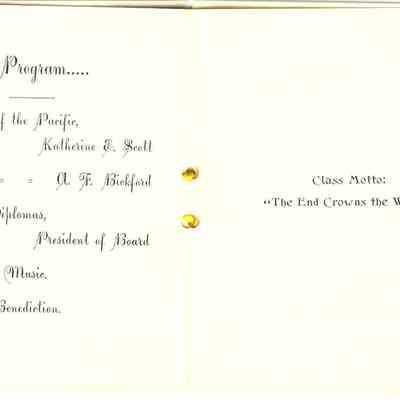 Program.....
f the Pacific,
Katherine E. Scott
= = A. F. Bickford
Diplomas,
President of Board
Music.
Benediction.
Class Motto:
"The End Crowns the W